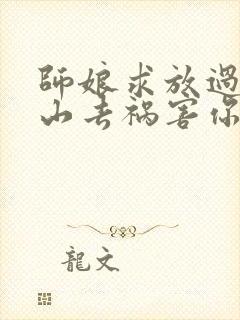 師娘求放過
山去禍害你
龍文